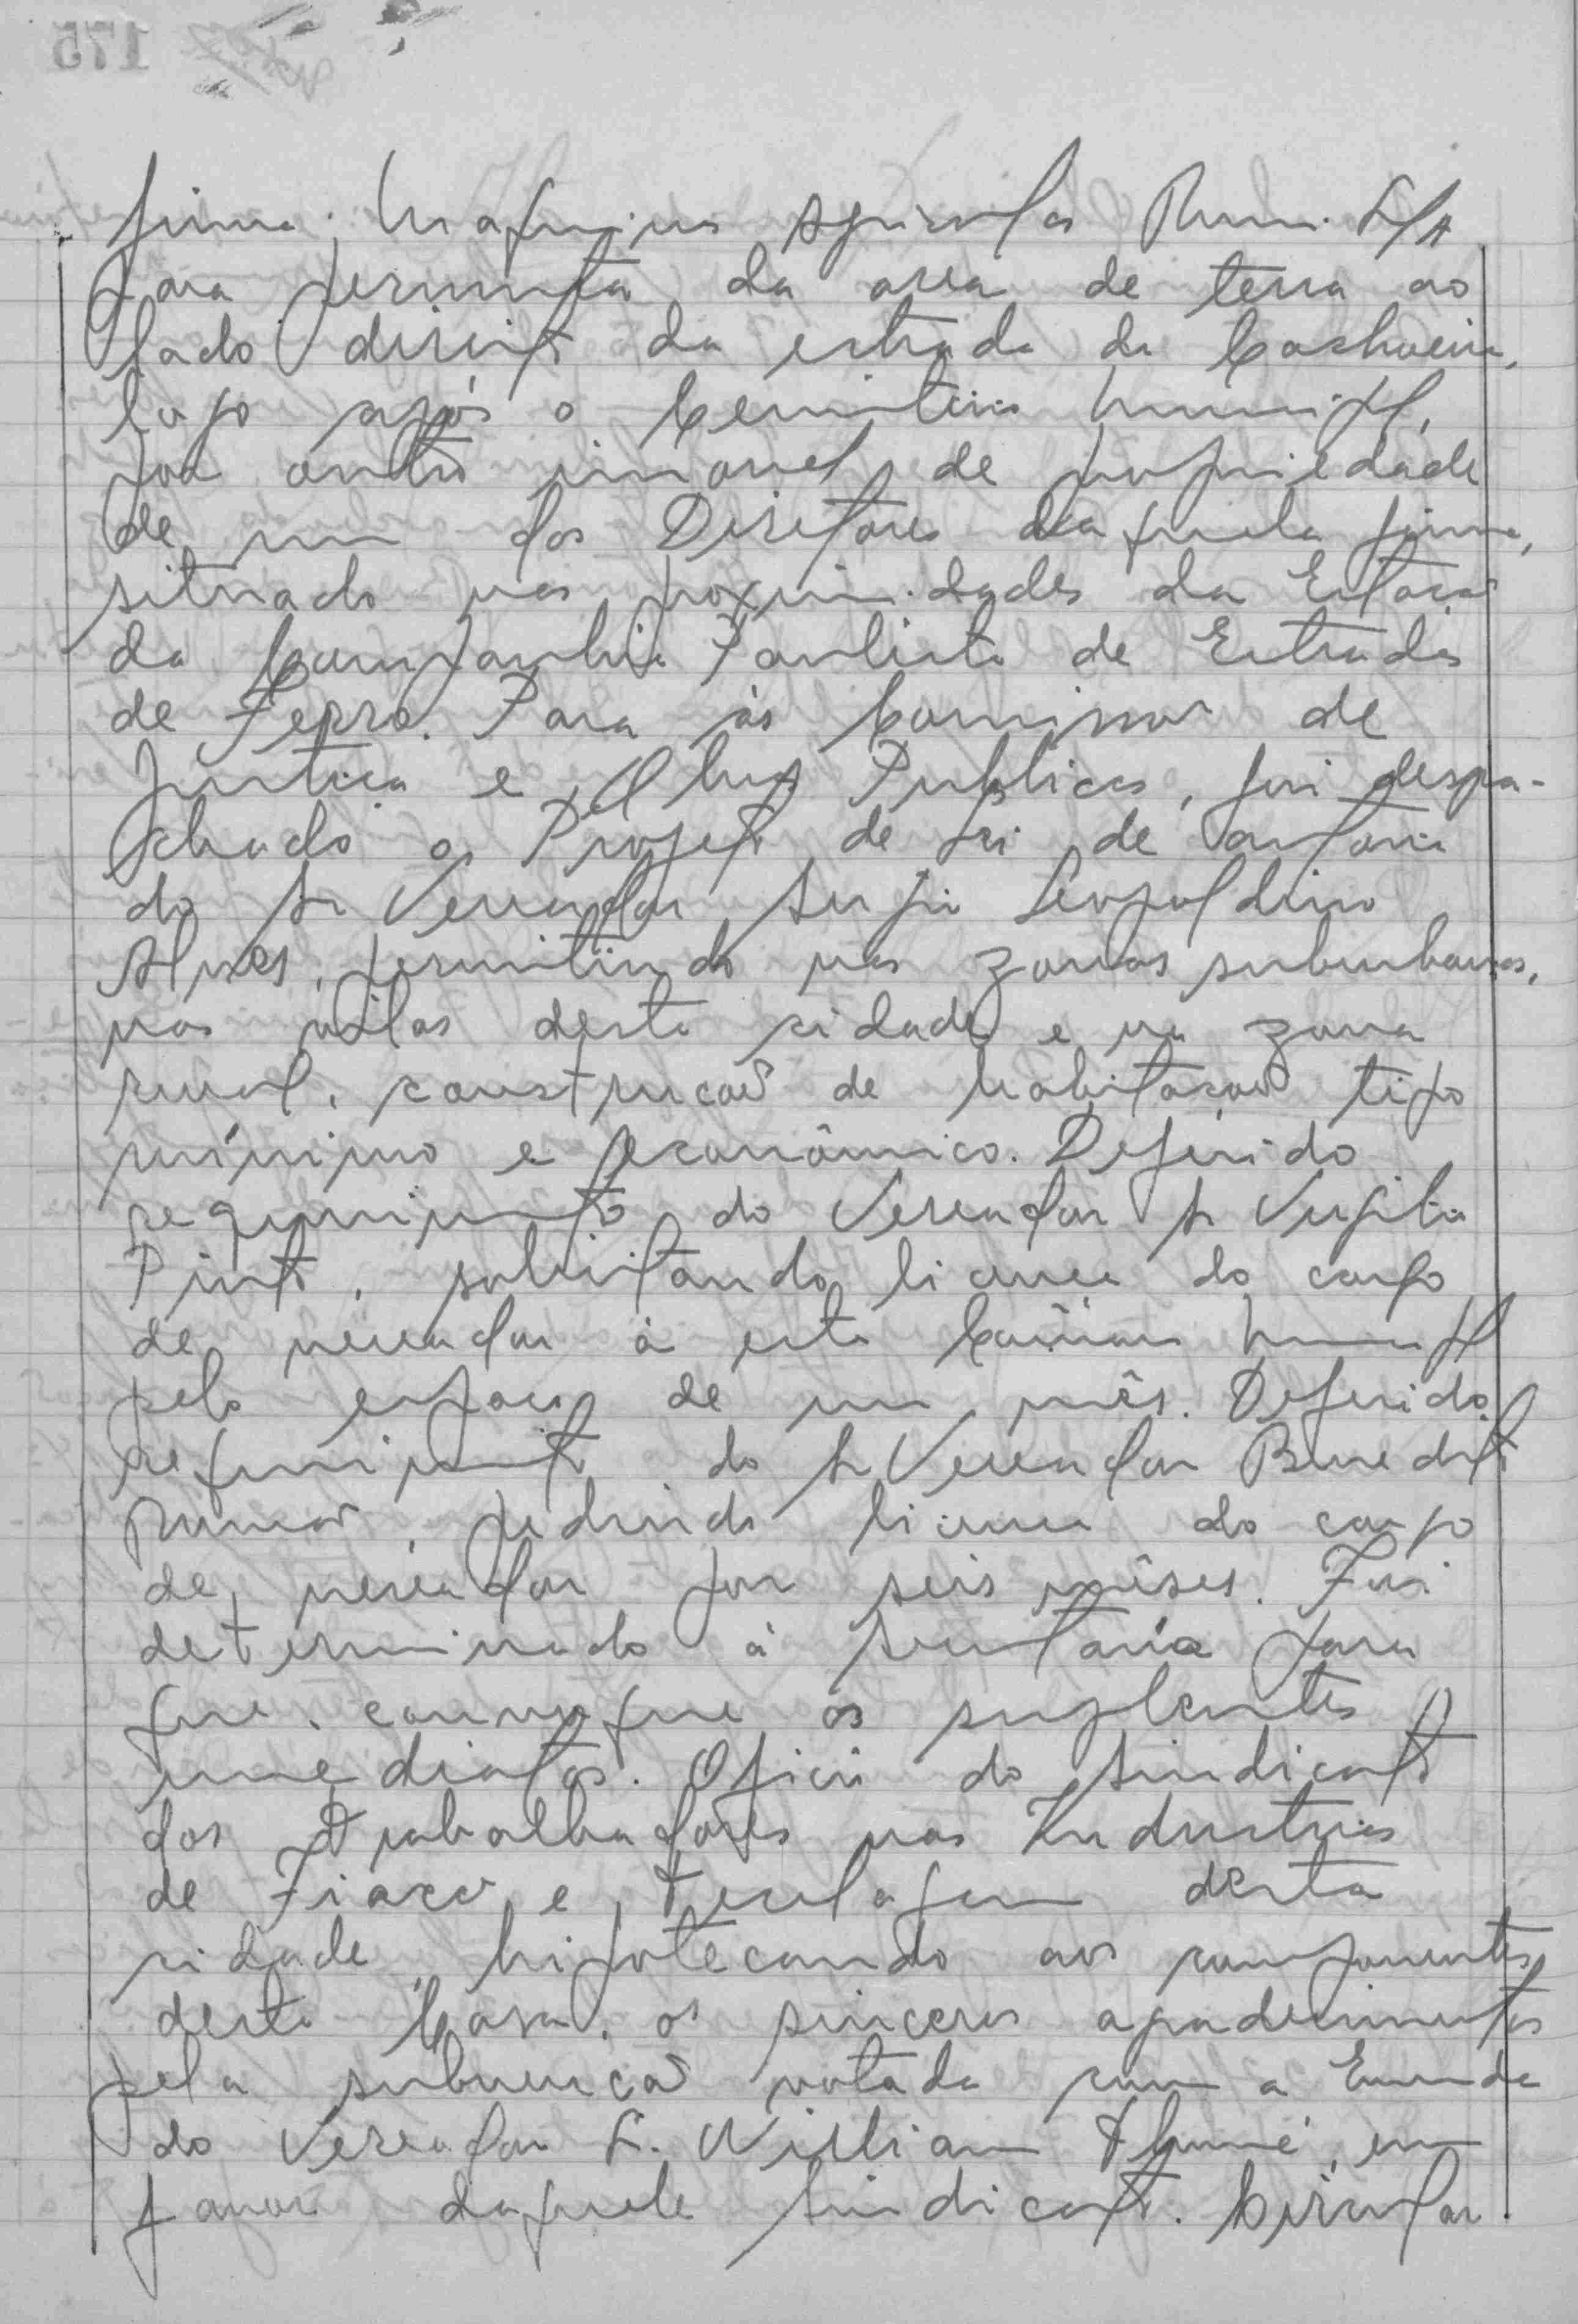 firma, Maquinas Agricolas Romi S/A
para permuta da area de terra ao
lado direito da estrada da Cachoeira,
logo após o Cemiterio Municipal,
por outro imovel de propriedade
de um dos Diretores daquela firma,
situado nas proximidades da Estação
da Companhia Paulista de Estradas
de Ferro. Para ás Comissões de
Justica e Obras Publicas, foi despa-
chado o Projeto de Lei de autoria
do Sr Vereador Sergio Leopoldino
Alves, permitindo nas zonas suburbanas,
nas vilas desta cidade e na zona
rural, construcão de habitacão tipo
mínimo e econômico. Deferido
requerimento do Vereador Sr Virgilio
Pinto, solicitando licença do cargo
de vereador á esta Camara Municipal
pelo espaço de um mês. Deferido
requerimento do Sr Vereador Benedito
, pedindo licença do cargo
de vereador por seis mêses. Foi
determinado á secretaria para
que convoque os suplentes
imediatos. Oficio do Sindicato
dos Trabalhadores nas Industrias
de Fiacão e Tecelagem desta
cidade, hipotecando aos componentes
desta Casa, os sinceros agradecimentos
pela subvencão votada com a Emenda
do Vereador Sr. Willian Thomé, em
favor daquele Sindicato. Circular
175